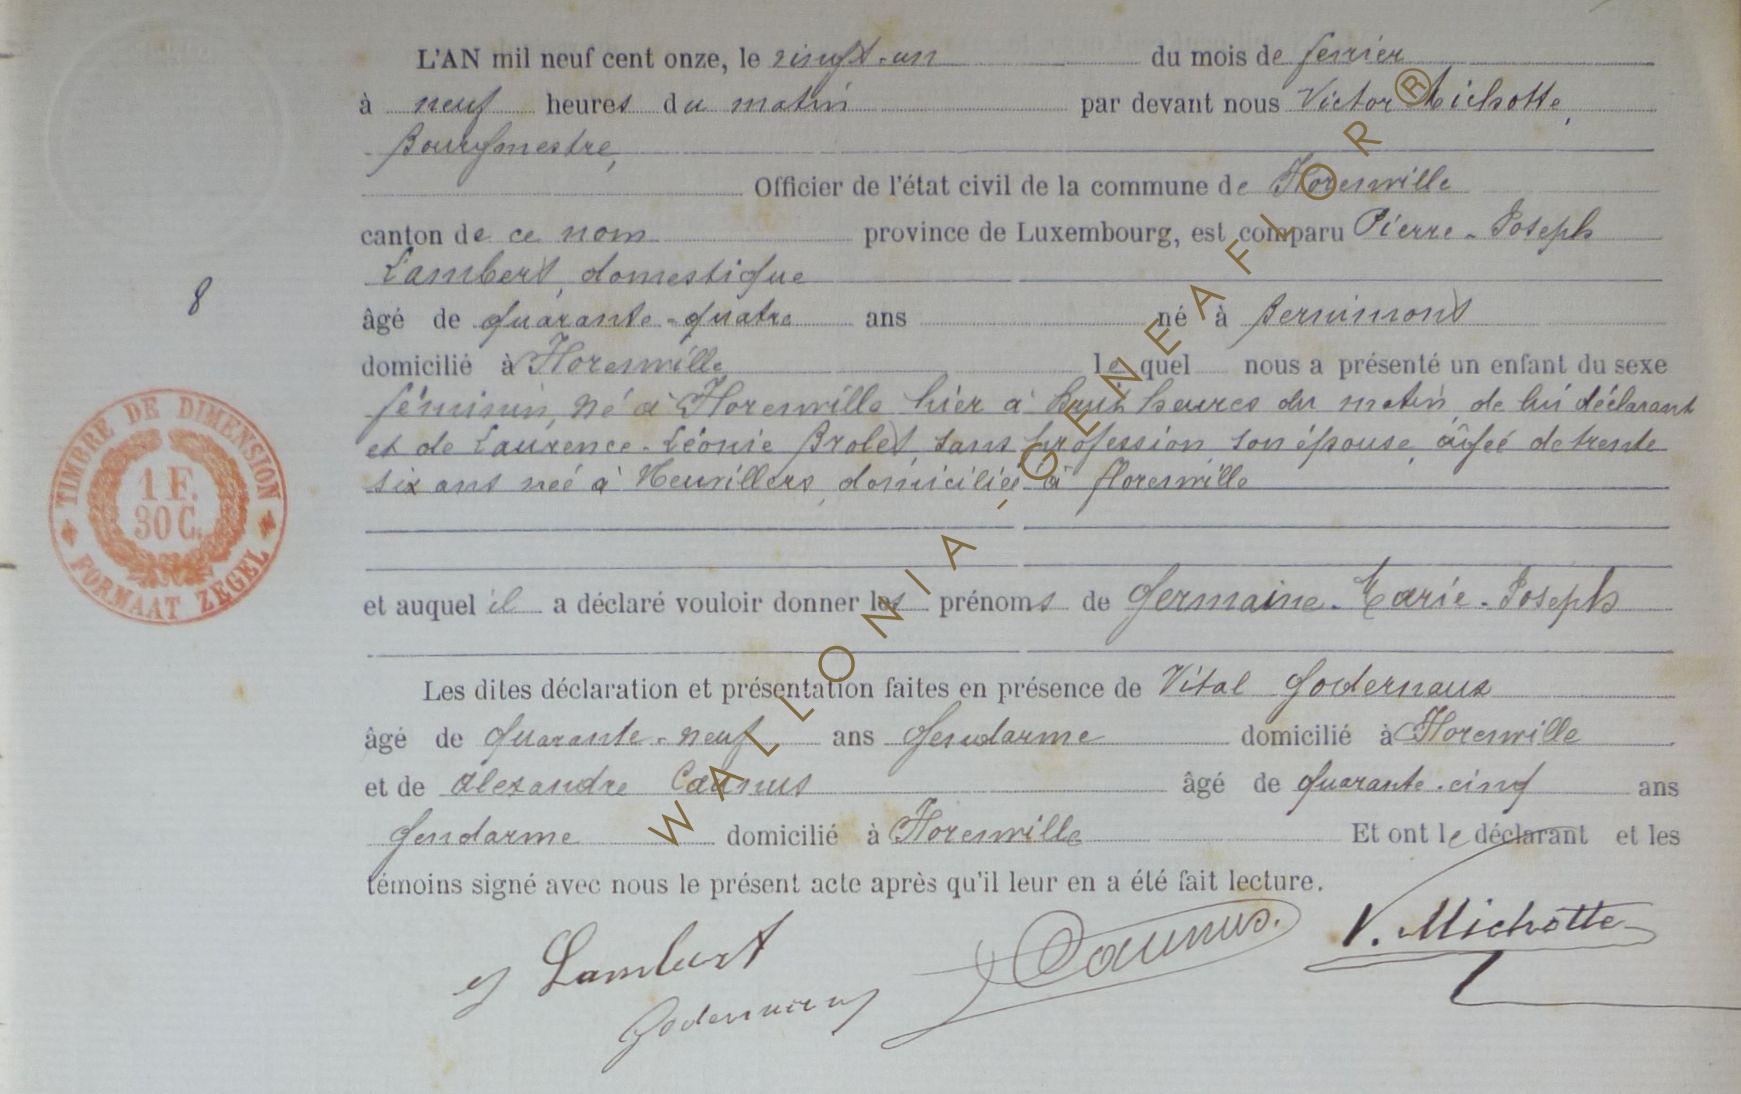 L'AN mil neuf cent onze, le vingt-un du mois de février
à neuf heures du matin par devant nous Victor Michotte,
Bourgmestre,
Officier de l'état civil de la commune de Florenville
canton de ce nom province de Luxembourg, est comparu Pierre-Joseph
Lambert, domestique
8
âgé de quarante-quatre ans né à Bernimont
domicilié à Florenville lequel nous a présenté un enfant du sexe
féminin, né à Florenville hier à huit heures du matin, de lui déclarant
et de Laurence-Léonie Brolet, sans profession son épouse, âgée de trente
six ans née à Neuvillers, domiciliée à Florenville
TIMBRE DE DIMENSION
1 F.
30 C.
FORMAAT ZEGEL
et auquel il a déclaré vouloir donner les prénoms de Germaine-Marie-Joseph
Les dites déclaration et présentation faites en présence de Vital Godernaux
âgé de quarante-neuf ans gendarme domicilié à Florenville
et de Alexandre Caunus âgé de quarante-cinq ans
gendarme domicilié à Florenville Et ont le déclarant et les
témoins signé avec nous le présent acte après qu'il leur en a été fait lecture.
Lambert Caunus. V. Michotte
Godernaux
WALLONIA-GENEAFLOR®